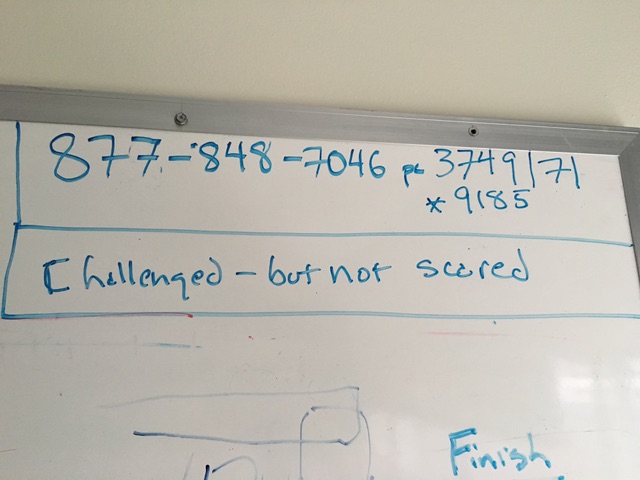 877-848-7046 pc 3749171
*9185
Challenged - but not scared
Finish